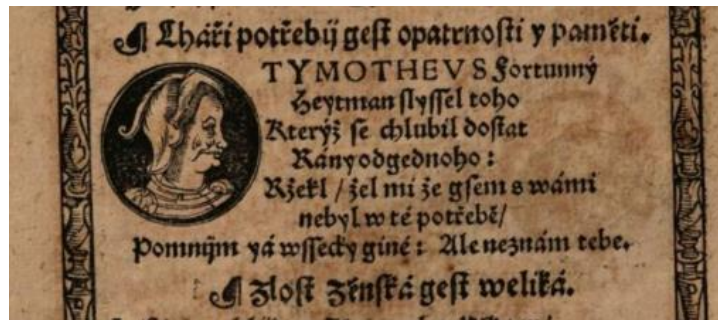 ¶ Lháři potřebij gest opatrnosti y paměti.
TYMOTHEVS Fortunný
Heytman slyssel toho
Kterýž se chlubil dostat
Rány odgednoho :
Ržekl / žel mi že gsem s wámi
nebyl w té potřebě /
Pomnijm yá wssecky giné : Ale neznám tebe.
¶ Zlost Zěnská gest weliká.